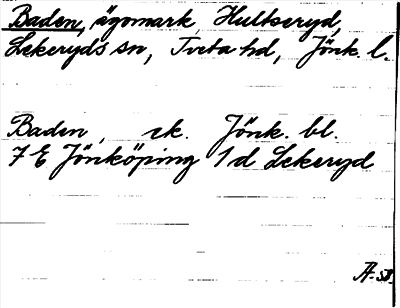 Baden, ägomark Hultseryd,
Lekeryds sn, Tveta hd, Jönk. l.
Baden, ek. Jönk. bl.
7 E Jönköping 1 d Lekeryd